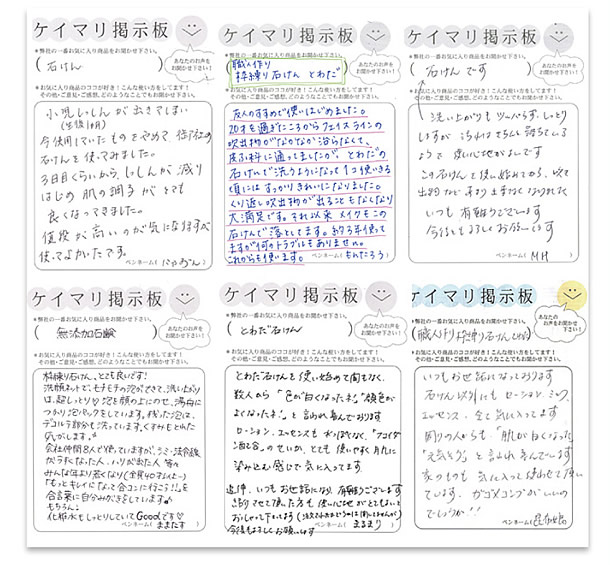 ケイマリ掲示板
*弊社の一番お気に入り商品をお聞かせ下さい。
(石けん)
あなたのお声を
お聞かせ下さい!
*お気に入り商品のココが好き!こんな使い方をしてます!
その他・ご意見・ご感想、どのようなことでもお聞かせ下さい。
小児しっしんが出てきてしまい
(生後1ヶ月)
今使用していたものをやめて、御社の
石けんを使ってみました。
3日目くらいから、しっしんが減り
はじめ肌の調子がとても
良くなってきました。
値段が高いのが気になりますが
使ってよかったです。
ペンネーム(にゃおん)
ケイマリ掲示板
*弊社の一番お気に入り商品をお聞かせ下さい。
職人作り
枠練り石けん とわだ
あなたのお声を
お聞かせ下さい!
*お気に入り商品のココが好き!こんな使い方をしてます!
その他・ご意見・ご感想、どのようなことでもお聞かせ下さい。
友人のすすめで使いはじめました。
20才を過ぎたころからフェイスラインの
吹出物がなかなか治らなくて、
皮ふ科に通ってましたが とわだの
石けんで洗うようになって1つ使いきる
頃にはすっかりきれいになりました。
くり返し吹出物が出ることもなくなり
大満足です。それ以来 メイクもこの
石けんで落としてます。約3年使って
ますが何のトラブルもありません。
これからも使います。
ペンネーム(もんたろう)
ケイマリ掲示板
*弊社の一番お気に入り商品をお聞かせ下さい。
(石けんです)
あなたのお声を
お聞かせ下さい!
*お気に入り商品のココが好き!こんな使い方をしてます!
その他・ご意見・ご感想、どのようなことでもお聞かせ下さい。
洗い上がりもツッパらず、しっとり
ようで使い心地がよいです
この石けんを使い始めてから、吹き
いつも有難うございます
今後もよろしくお願いします
ペンネーム(MH)
ケイマリ掲示板
*弊社の一番お気に入り商品をお聞かせ下さい。
(無添加石鹸)
あなたのお声を
お聞かせ下さい!
*お気に入り商品のココが好き!こんな使い方をしてます!
その他・ご意見・ご感想、どのようなことでもお聞かせ下さい。
枠練り石けん、とっても良いです!
洗顔ネットで、モチモチの泡ができて、洗い上がり
は、超しっとり♡泡を顔の上にのせ、湯舟に
つかり泡パックをしています。残った泡は、
デコルテ部分も洗っています。くすみもとれた
気がします。
会社仲間8人で使っていますが、シミ・法令線
がうすくなった人、ハリが出た人 等々
みんな年より若くなり(全員40才以上〜)
「もっとキレイになって合コンに行こう!!」を
合言葉に自分みがきをしています
もちろん
化粧水もしっとりしていてGoodです♡
ペンネーム(ままたす)
ケイマリ掲示板
*弊社の一番お気に入り商品をお聞かせ下さい。
(とわだ石けん)
あなたのお声を
お聞かせ下さい!
*お気に入り商品のココが好き!こんな使い方をしてます!
その他・ご意見・ご感想、どのようなことでもお聞かせ下さい。
とわだ石けんを使い始めて間もなく、
数人から「色が白くなったネ」「顔色が
よくなったネ」と言われ喜んでおります
ローション、エッセンスもネバつかなく、"フコイダン
配合"のせいか、とても使いやすく肌に
染み込む感じで気に入ってます
追伸、いつもお世話になり、有難うございます
紹介させて頂いた方も使い心地がとてもよいと
おっしゃって下さいます
今後もよろしくお願いします
ペンネーム(まるまり)
ケイマリ掲示板
*弊社の一番お気に入り商品をお聞かせ下さい。
(職人作り枠練り石けんとわだ)
あなたの
お声をお聞かせ下さい!
*お気に入り商品のココが好き!こんな使い方をしてます!
その他・ご意見・ご感想、どのようなことでもお聞かせ下さい。
いつもお世話になっております
石けん以外にもローション、ミルク、
エッセンス、全て気に入ってます
周りの人からも、「肌が白くなった」
「元気そう」と言われ喜んでいます
家のものも気に入って使わせて頂い
ています。ガゴメコンブがいいの
でしょうか!!
ペンネーム(昆布娘)